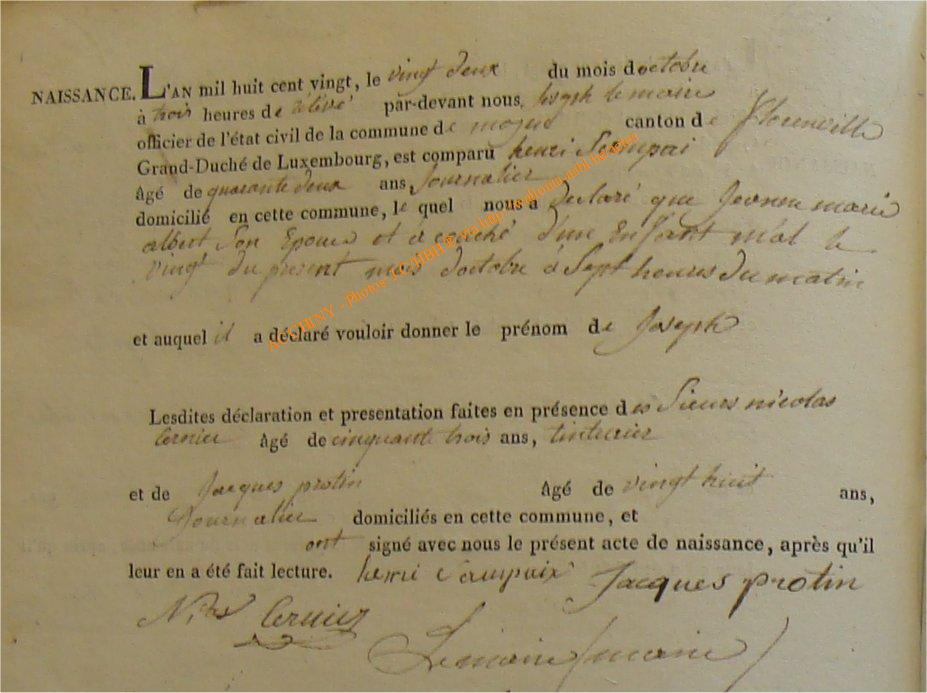 NAISSANCE. L'AN mil huit cent vingt, le vingt deux du mois doctobre
à trois heures de par-devant nous, Joseph lemaire
officier de l'état civil de la commune de canton de florenville
Grand-Duché de Luxembourg, est comparu henri
âgé de quarante deux ans, Journalier
domicilié en cette commune, le quel nous a declaré que Jeanne marie
albert Son Epouse et a couché d'une Enfant mal le
vingt du present mois doctobre a Sept heures du matin
et auquel il a déclaré vouloir donner le prénom de Joseph
Lesdites déclaration et presentation faites en présence des Sieurs nicolas
Cernier âgé de cinquante trois ans, tinturier
et de Jacques protin âgé de vingt huit ans,
Journalier domiciliés en cette commune, et
ont signé avec nous le présent acte de naissance, après qu'il
leur en a été fait lecture. henri Jacques protin
Cernier
Lemaire maire